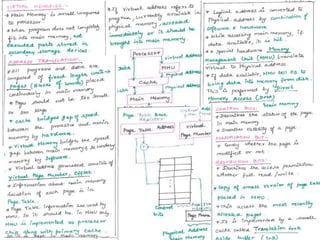 VIRTUAL MEMORIES -
* Main Memory is small compared
to processor's
* When program does not completely
fit into main memory, not
executed parts stored in
secondary storage devices
ADDRESS TRANSLATION:
* All programs and data are
composed of fixed length units
Pages (Blocks of words) placed
in main memory
* Pages should not be too small
or too large
* cache bridges gap of speed
between the processor and main
memory by hardware.
* Virtual Memory bridges the speed
gap between main memory & secondary
memory by software.
* Virtual address generated consists of
Virtual Page Number, Offset.
* Information about main memory
location of each page is in
Page Table.
* Page Table Information are used by
MMU. So it should be in MMU only
MMU is implemented as processor
chip along with primary cache.
* If Virtual address refers to
program, currently available in
physical memory, accessed
immediately or it should be
brought into main memory.
PROCESSOR
MMU
Cache
Main Memory
Page Table Base
Register
Page Table Address
Virtual Address
Virtual Page Number
Control
bits
Page Frame
Physical Address
Main memory
* Logical address is converted to
Physical address by combination of
software & hardware
* While accessing main memory, if
data available, it is hit
* A special hardware Memory
Management Unit (MMU) translates
Virtual to Physical address
* If data available, MMU asks OS to
bring data into memory from disk.
This is performed by Direct
Memory Access (DMA)
CONTROL BITS:
* Describes the status of the page
in main memory
* Describes validity of a page
MODIFICATION BIT:
* Tells whether the page is
modified or not
RESTRICTION BIT:
* Describes the access permission
whether full read / write
* copy of small version of page table
placed in MMU.
* This has the most recently
accessed pages
* It's implemented by a small
cache called Translation look
aside buffer (TLB)